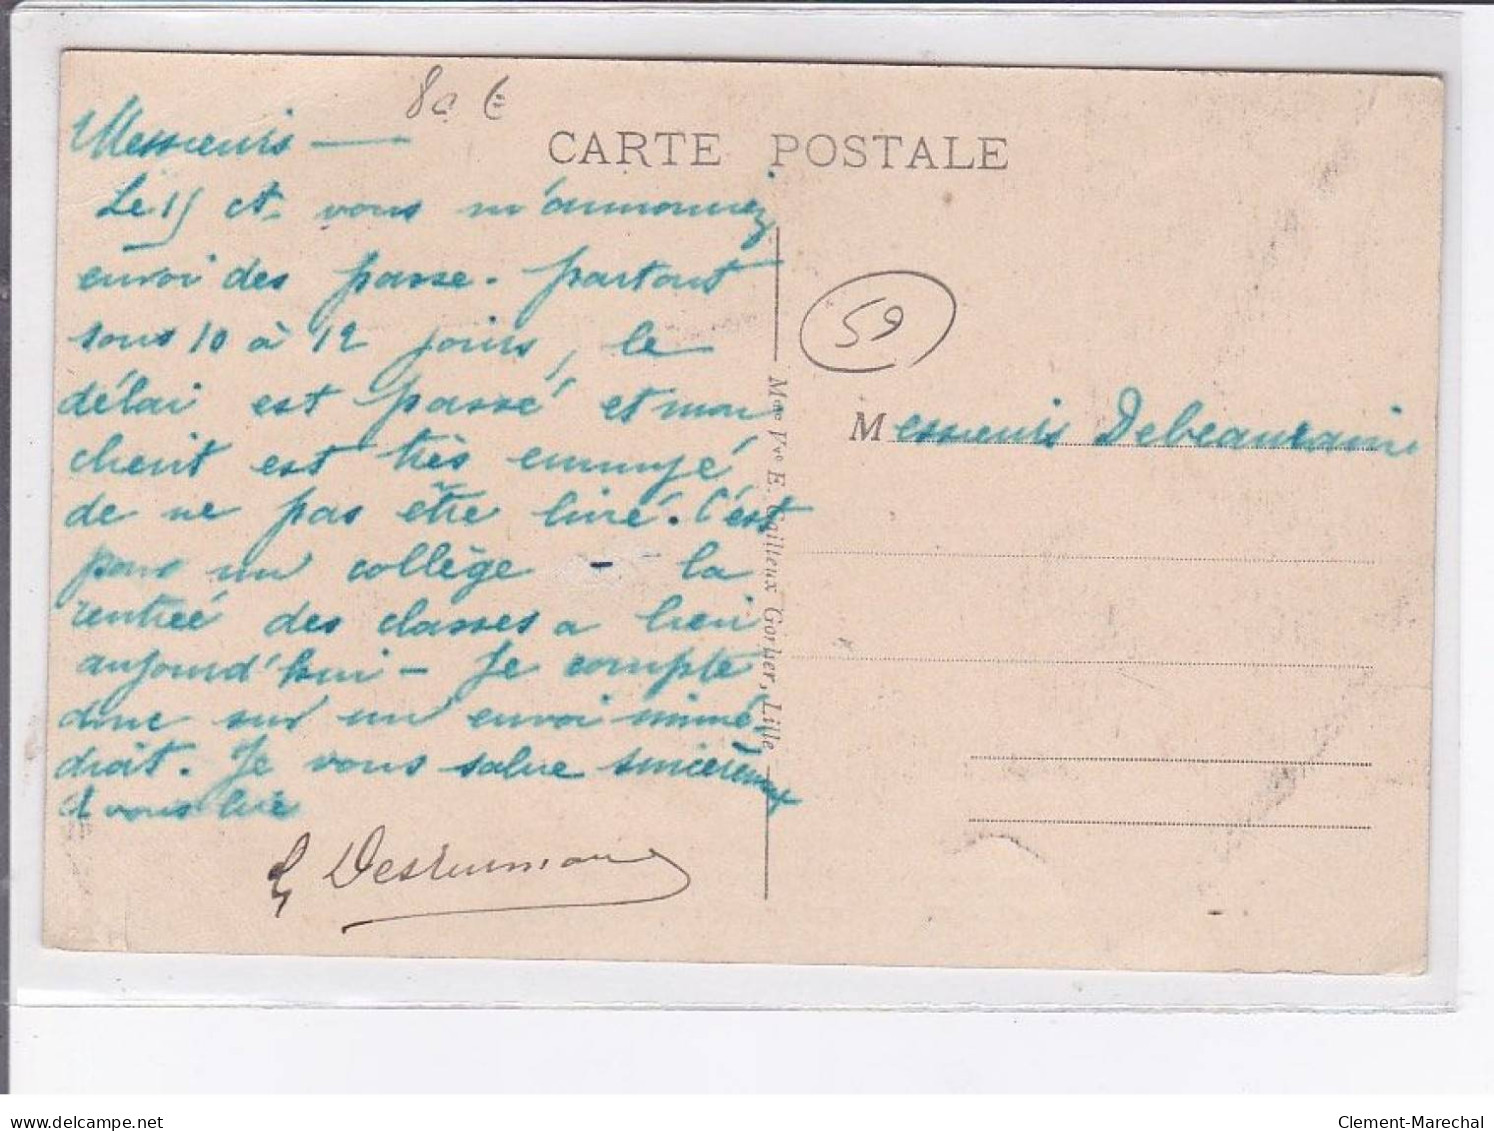 80 €
CARTE POSTALE
Messieurs —
Le 15 ct. vous m'annonciez
envoi des passe-partout
sous 10 à 12 jours, le
délai est passé et mon
client est très ennuyé
de ne pas être livré. C'est
pour un collège - la
rentrée des classes a lieu
aujourd'hui - Je compte
donc sur un envoi immé
diat. Je vous salue
et vous
59
Messieurs Debeaurain
Mme Vve E. Cailleux Gorlier, Lille
delcampe.net
Clement-Marechal